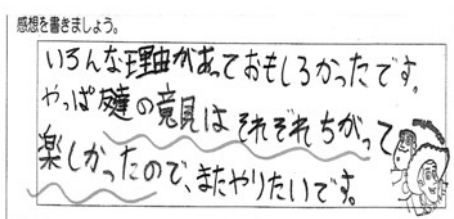 感想を書きましょう。
いろんな理由があっておもしろかったです。
やっぱ友達の意見はそれぞれちがって
楽しかったので、またやりたいです。